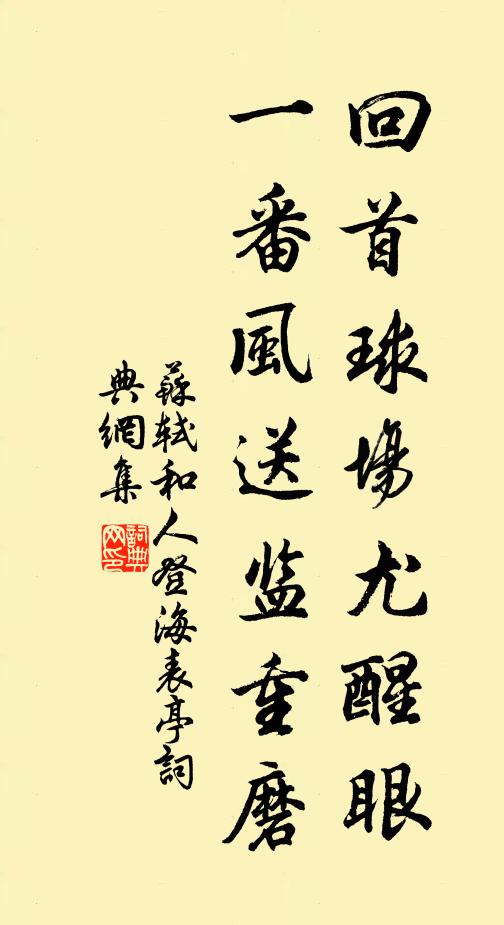 回首球場尤醒眼
一番風送监重磨
蘇軾和人登海表亭詞
典網集
詞典
网印